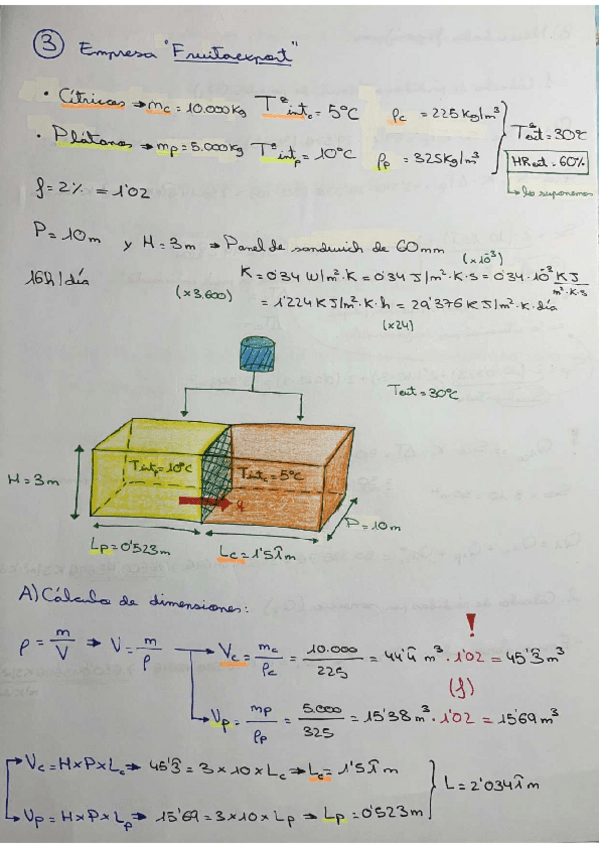 ③ Empresa "Fruitaexport"
• Cítricos → mc = 10.000 Kg Tª intc = 5ºC ρc = 225 Kg/m³
• Plátanos → mp = 5.000 Kg Tª intp = 10ºC ρp = 325 Kg/m³
Text = 30ºC
HRext = 60%
→ lo suponemos
f = 2% = 1'02
P = 10m y H = 3m → Panel de sandwich de 60mm
16h/día
(x10⁻³)
K = 0'34 W/m²·K = 0'34 J/m²·K·s = 0'34·10⁻³ KJ/m²·K·s
(x3.600)
= 1'224 KJ/m²·K·h = 29'376 KJ/m²·K·día
(x24)
Text = 30ºC
Tintp = 10ºC
Tintc = 5ºC
H = 3m
q
P = 10m
Lp = 0'523m
Lc = 1'51̂m
A) Cálculo de dimensiones:
!
ρ = m/V → V = m/ρ → Vc = mc/ρc = 10.000/225 = 44'4̂ m³ · 1'02 = 45'3̂ m³
(f)
→ Vp = mp/ρp = 5.000/325 = 15'38 m³ · 1'02 = 15'69 m³
Vc = H x P x Lc → 45'3̂ = 3 x 10 x Lc → Lc = 1'51̂ m
L = 2'034̂1 m
Vp = H x P x Lp → 15'69 = 3 x 10 x Lp → Lp = 0'523m